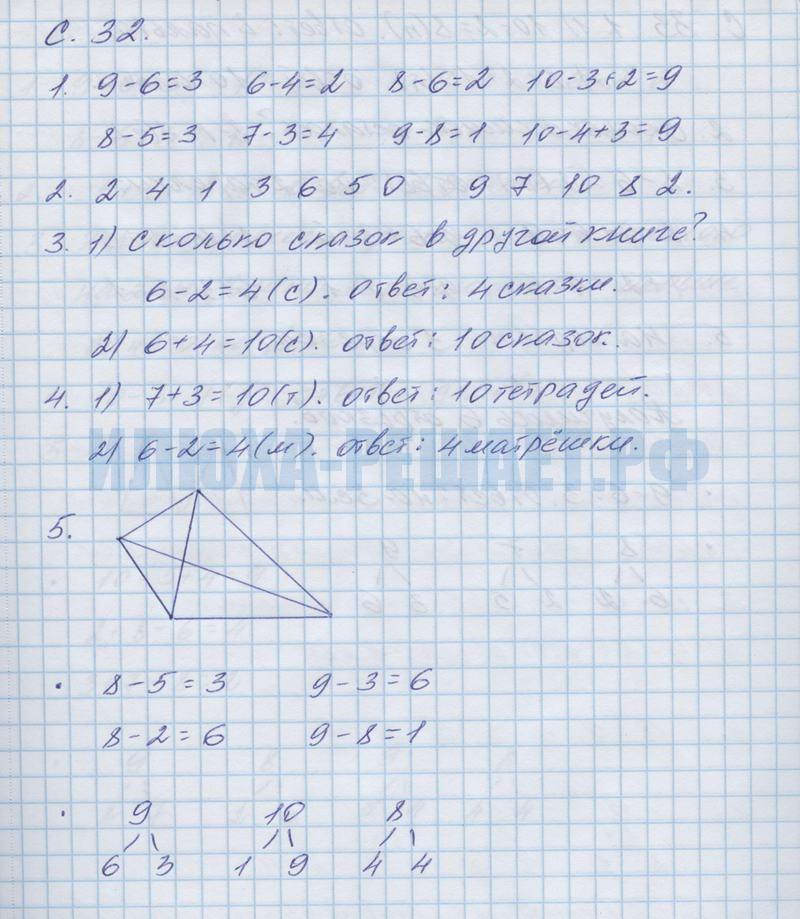 С. 32.
1. 9-6=3 6-4=2 8-6=2 10-3+2=9
8-5=3 7-3=4 9-8=1 10-4+3=9
2. 2 4 1 3 6 5 0 9 7 10 8 2.
3. 1) Сколько сказок в другой книге?
6-2=4(с). Ответ: 4 сказки.
2) 6+4=10(с). Ответ: 10 сказок.
4. 1) 7+3=10(т). Ответ: 10 тетрадей.
2) 6-2=4(м). Ответ: 4 матрёшки.
ИЛЮХА-РЕШАЕТ.РФ
5.
· 8-5=3 9-3=6
8-2=6 9-8=1
· 9 10 8
6 3 1 9 4 4